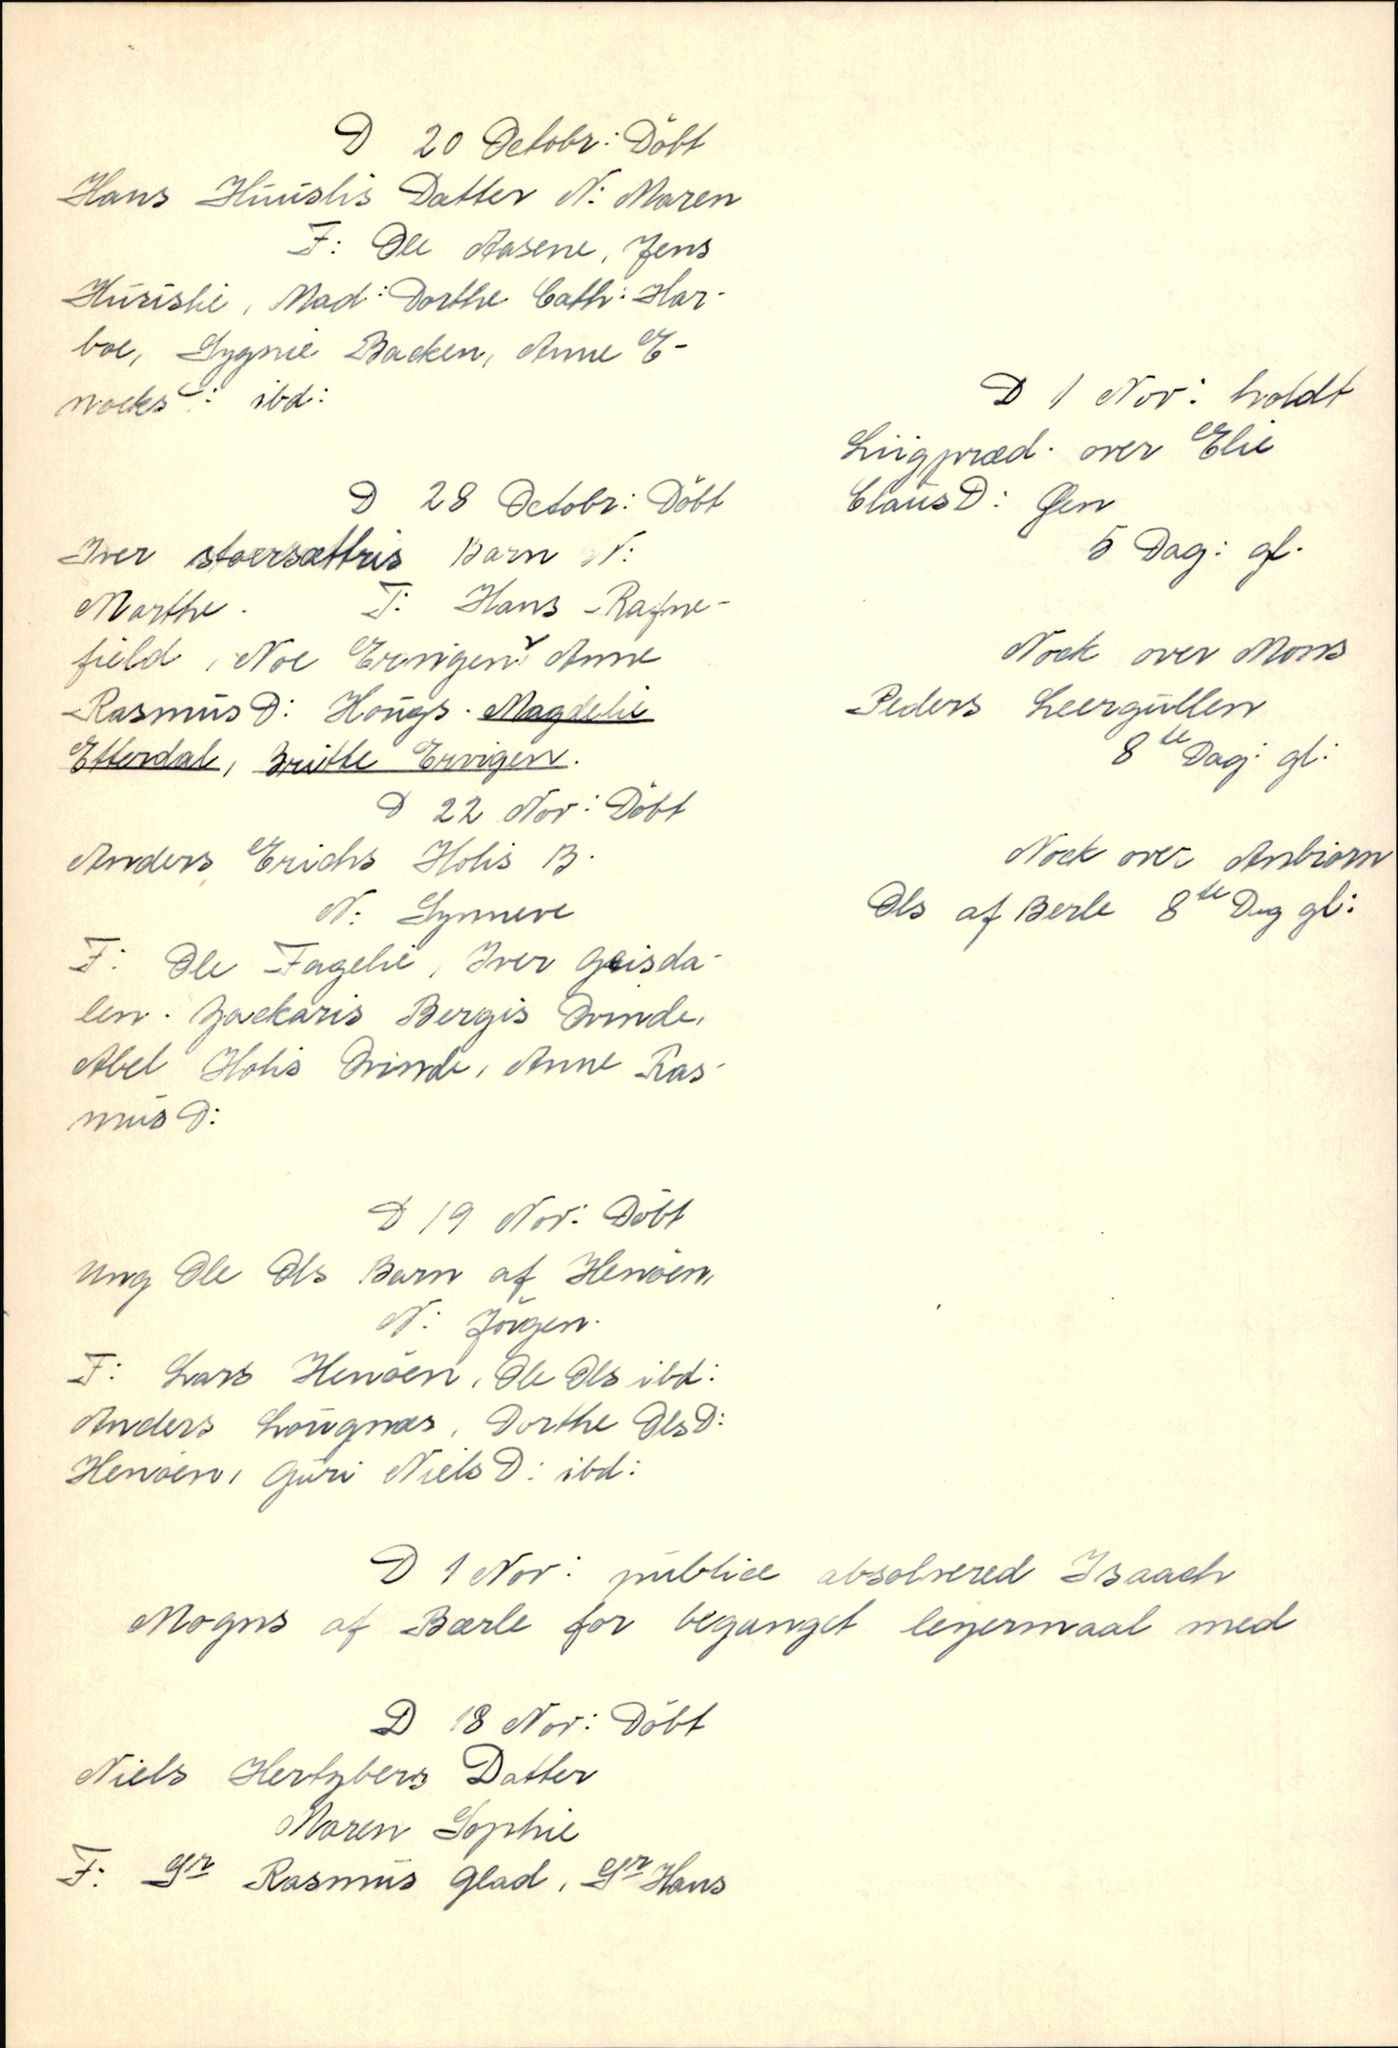 D 20 Octobr: Döbt
Hans Húúslis Datter N: Maren
F: Ole Aasene, Jens
Húúslie, Mad: Dorthe Cath: Har-
boe, Sygnie Backen, Anne E-
nocks: ibd:
D 28 Octobr: Döbt
Iver stoersættris Barn N:
Marthe. F: Hans Rafne-
field, Noe Ervigen, Anne
Rasmús D: Hoúgs. Magdelie
Etterdal, Britte Ervigen.
D 22 Nov: Döbt
Anders Erichs Holis B.
N: Synneve
F: Ole Fagelie, Iver Geisda-
len. Zackaris Bergis Qvinde,
Abel Holis Qvinde, Anne Ras-
mús D:
D 19 Nov: Döbt
Ung Ole Ols Barn af Henöen,
N: Jörgen.
F: Lars Henöen, Ole Ols ibd:
Anders Loúgnæs, Dorthe Ols D:
Henöen, Gúri Niels D: ibd:
D 1 Nov: holdt
Liigpræd. over Elie
Claús D: Øen
5 Dag: gl.
Nock over Mons
Peders Leergúllen
8te Dag: gl:
Nock over Anbiorn
Ols af Berle 8te Dag gl:
D 1 Nov: públice absolvered Isaach
Mogns af Bærle for beganget lejermaal med
D 18 Nov: Döbt
Niels Hertzbers Datter
Maren Sophie
F: Sr Rasmús Glad, Sr Hans